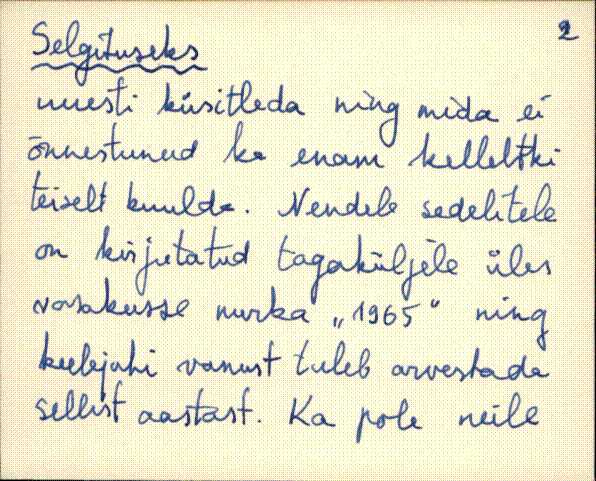 2
Selgituseks
uuesti küsitleda ning mida ei
õnnestunud ka enam kelleltki
teiselt kuulda. Nendele sedelitele
on kirjutatud tagaküljele üles
vasakusse nurka „1965“ ning
keelejuhi vanust tuleb arvestada
sellist aastast. Ka pole neile